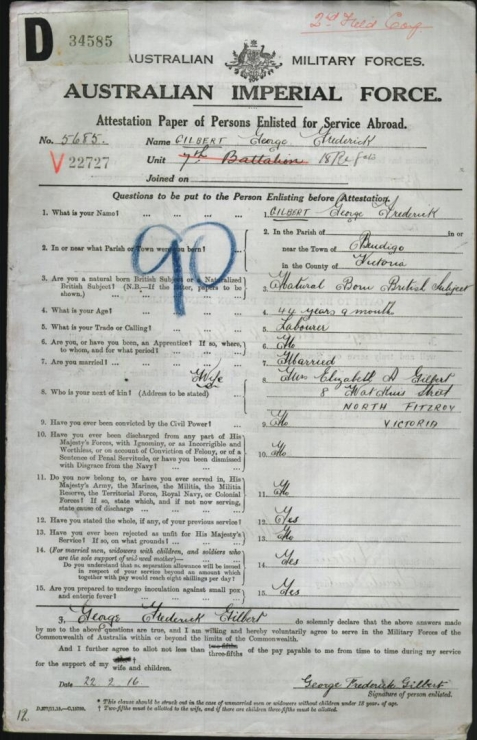 2nd Field Coy
D 34585
AUSTRALIAN MILITARY FORCES.
AUSTRALIAN IMPERIAL FORCE.
Attestation Paper of Persons Enlisted for Service Abroad.
No. 5685. Name GILBERT George Frederick
V 22727 Unit 7th Battalion 18 Refs
Joined on
Questions to be put to the Person Enlisting before Attestation.
1. What is your Name? ... 1. GILBERT George Frederick
2. In or near what Parish or Town were you born? ... 2. In the Parish of in or
near the Town of Bendigo
in the County of Victoria
3. Are you a natural born British Subject or a Naturalized
British Subject? (N.B.—If the latter, papers to be
shown.) 3. Natural Born British Subject
4. What is your Age? ... 4. 44 years 9 month
5. What is your Trade or Calling? ... 5. Labourer
6. Are you, or have you been, an Apprentice? If so, where,
to whom, and for what period? 6. No
7. Are you married? ... 7. Married
Wife
8. Who is your next of kin? (Address to be stated) 8. Mrs Elizabeth A Gilbert
8 Street
NORTH FITZROY
VICTORIA
9. Have you ever been convicted by the Civil Power? 9. No
10. Have you ever been discharged from any part of His
Majesty's Forces, with Ignominy, or as Incorrigible and
Worthless, or on account of Conviction of Felony, or of a
Sentence of Penal Servitude, or have you been dismissed
with Disgrace from the Navy? 10. No
11. Do you now belong to, or have you ever served in, His
Majesty's Army, the Marines, the Militia, the Militia
Reserve, the Territorial Force, Royal Navy, or Colonial
Forces? If so, state which, and if not now serving,
state cause of discharge 11. No
12. Have you stated the whole, if any, of your previous service? 12. Yes
13. Have you ever been rejected as unfit for His Majesty's
Service? If so, on what grounds? 13. No
14. (For married men, widowers with children, and soldiers who
are the sole support of widowed mother)—
Do you understand that no separation allowance will be issued
in respect of your service beyond an amount which
together with pay would reach eight shillings per day? 14. Yes
15. Are you prepared to undergo inoculation against small pox
and enteric fever? 15. Yes
90
I, George Frederick Gilbert do solemnly declare that the above answers made
by me to the above questions are true, and I am willing and hereby voluntarily agree to serve in the Military Forces of the
Commonwealth of Australia within or beyond the limits of the Commonwealth.
And I further agree to allot not less than two-fifths three-fifths of the pay payable to me from time to time during my service
for the support of my wife and children.
Date 22 2 16 George Frederick Gilbert
Signature of person enlisted.
* This clause should be struck out in the case of unmarried men or widowers without children under 18 years of age.
† Two-fifths must be allotted to the wife, and if there are children three-fifths must be allotted.
12